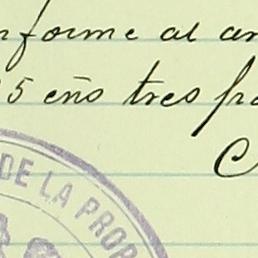 nforme al ar
5 eño tres fra
C
DE LA PROP